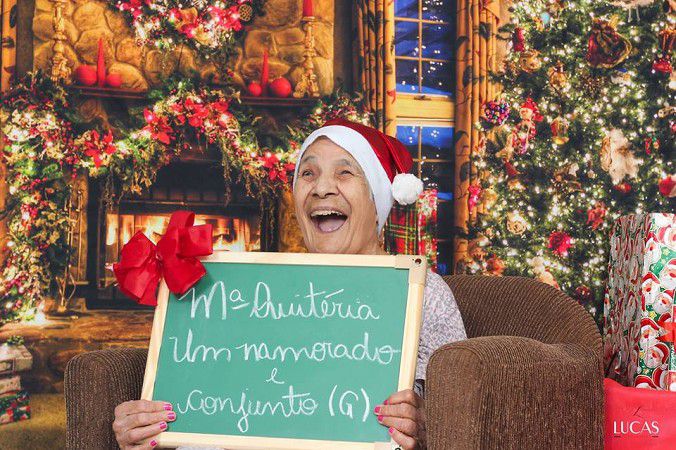 Mª Quitéria
Um namorado
e
conjunto (G)
LUCAS